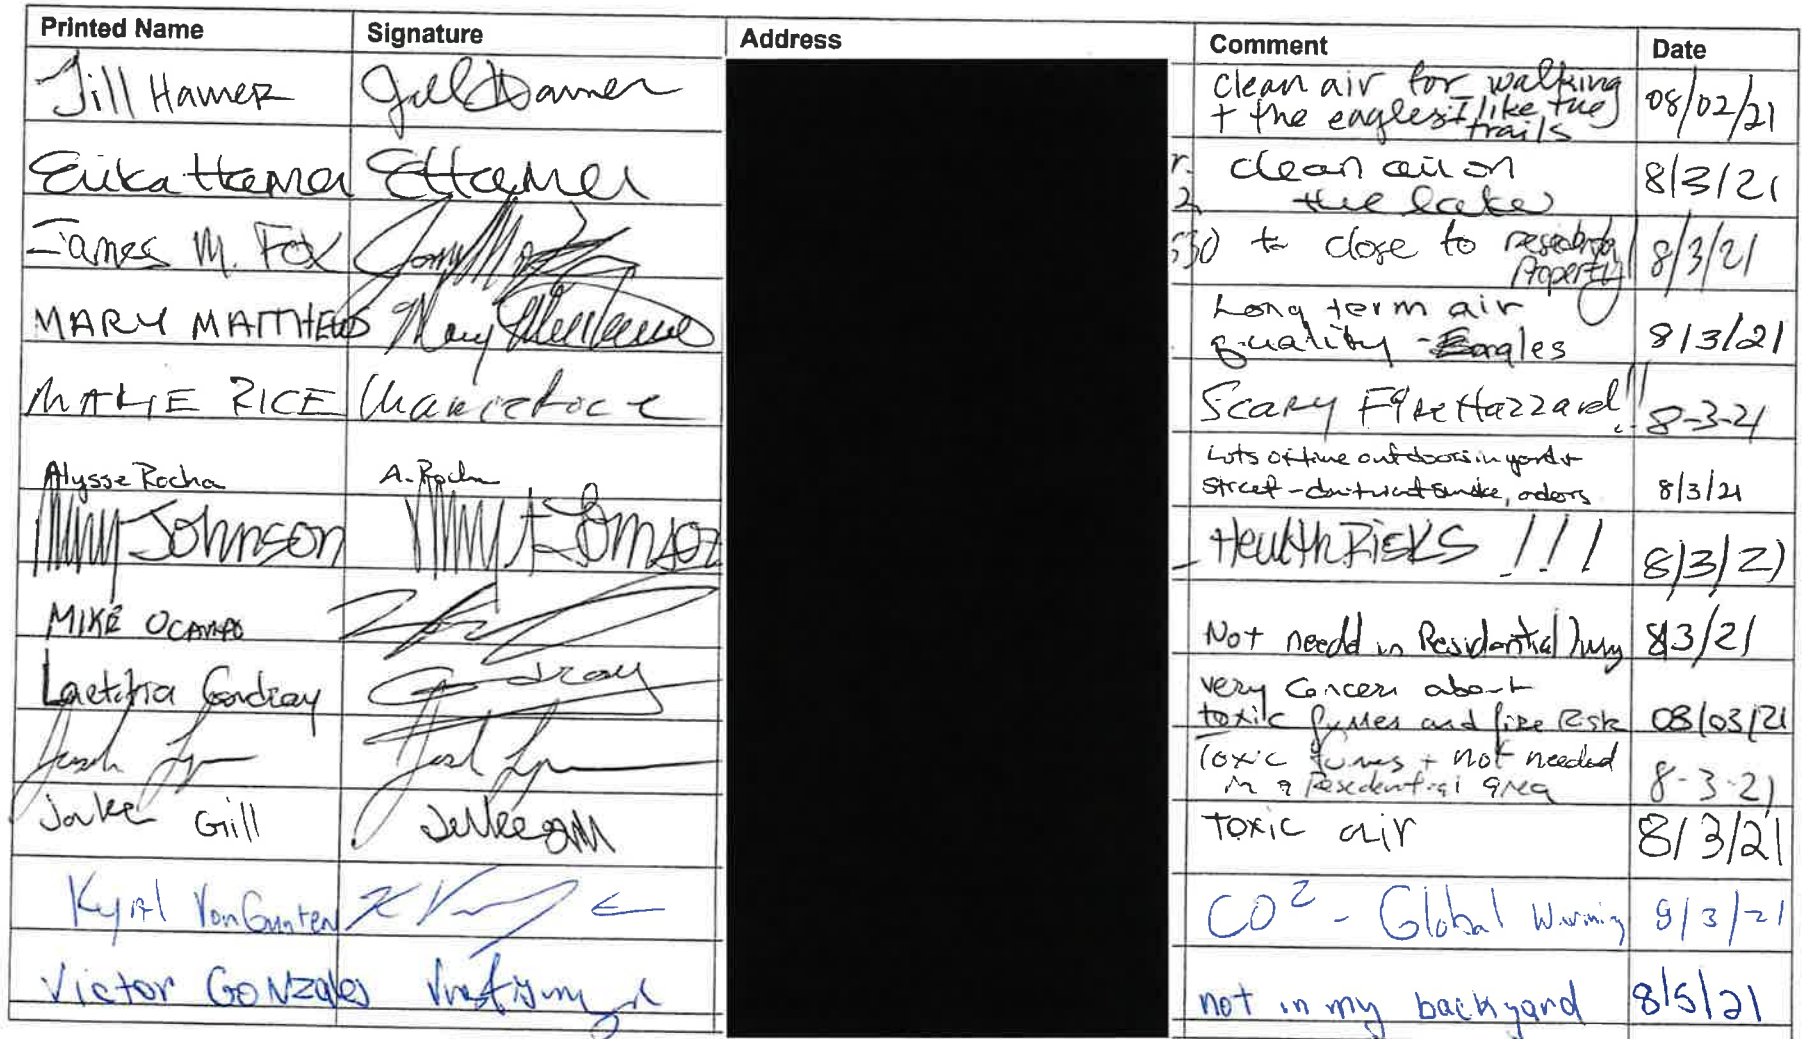 Printed Name Signature Address Comment Date
Jill Hamer Jill Hamer clean air for walking
+ the eagles I like the trails 08/02/21
Erika Hamer EHamer r. clean air on
2 the lake 8/3/21
James M. Fox 530 to close to
Property 8/3/21
MARY MATTHEWS Mary Long term air
quality - Eagles 8/3/21
MARIE RICE Marie Rice Scary Fire Hazzard!!! 8-3-21
Alysse Rocha A. Rocha Lots of time outdoors in yard +
street - don't want smoke, odors 8/3/21
Johnson Johnson Health Risks !!! 8/3/21
MIKE OCAMPO Not needd in Residential 8/3/21
Laetitia Gendray Gendray very Concern about
toxic fumes and fire Risk 08/03/21
Josh Josh Toxic fumes + not needed
in a Resedential area 8-3-21
Jake Gill Jake Gill Toxic air 8/3/21
Kyral VonGunten CO2 - Global Warming 8/3/21
Victor GONZales not in my backyard 8/5/21